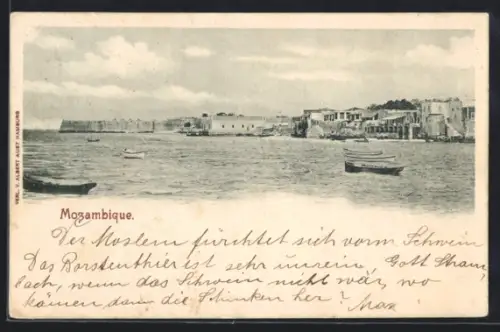 VERL. V. ALBERT AUST HAMBURG
Mozambique.
Der Moslem fürchtet sich vorm Schwein
Das Borstenthier ist sehr unrein, Gott Stram
bach, wenn das Schwein nicht wär, wo
kömen dann die Schinken her? Max